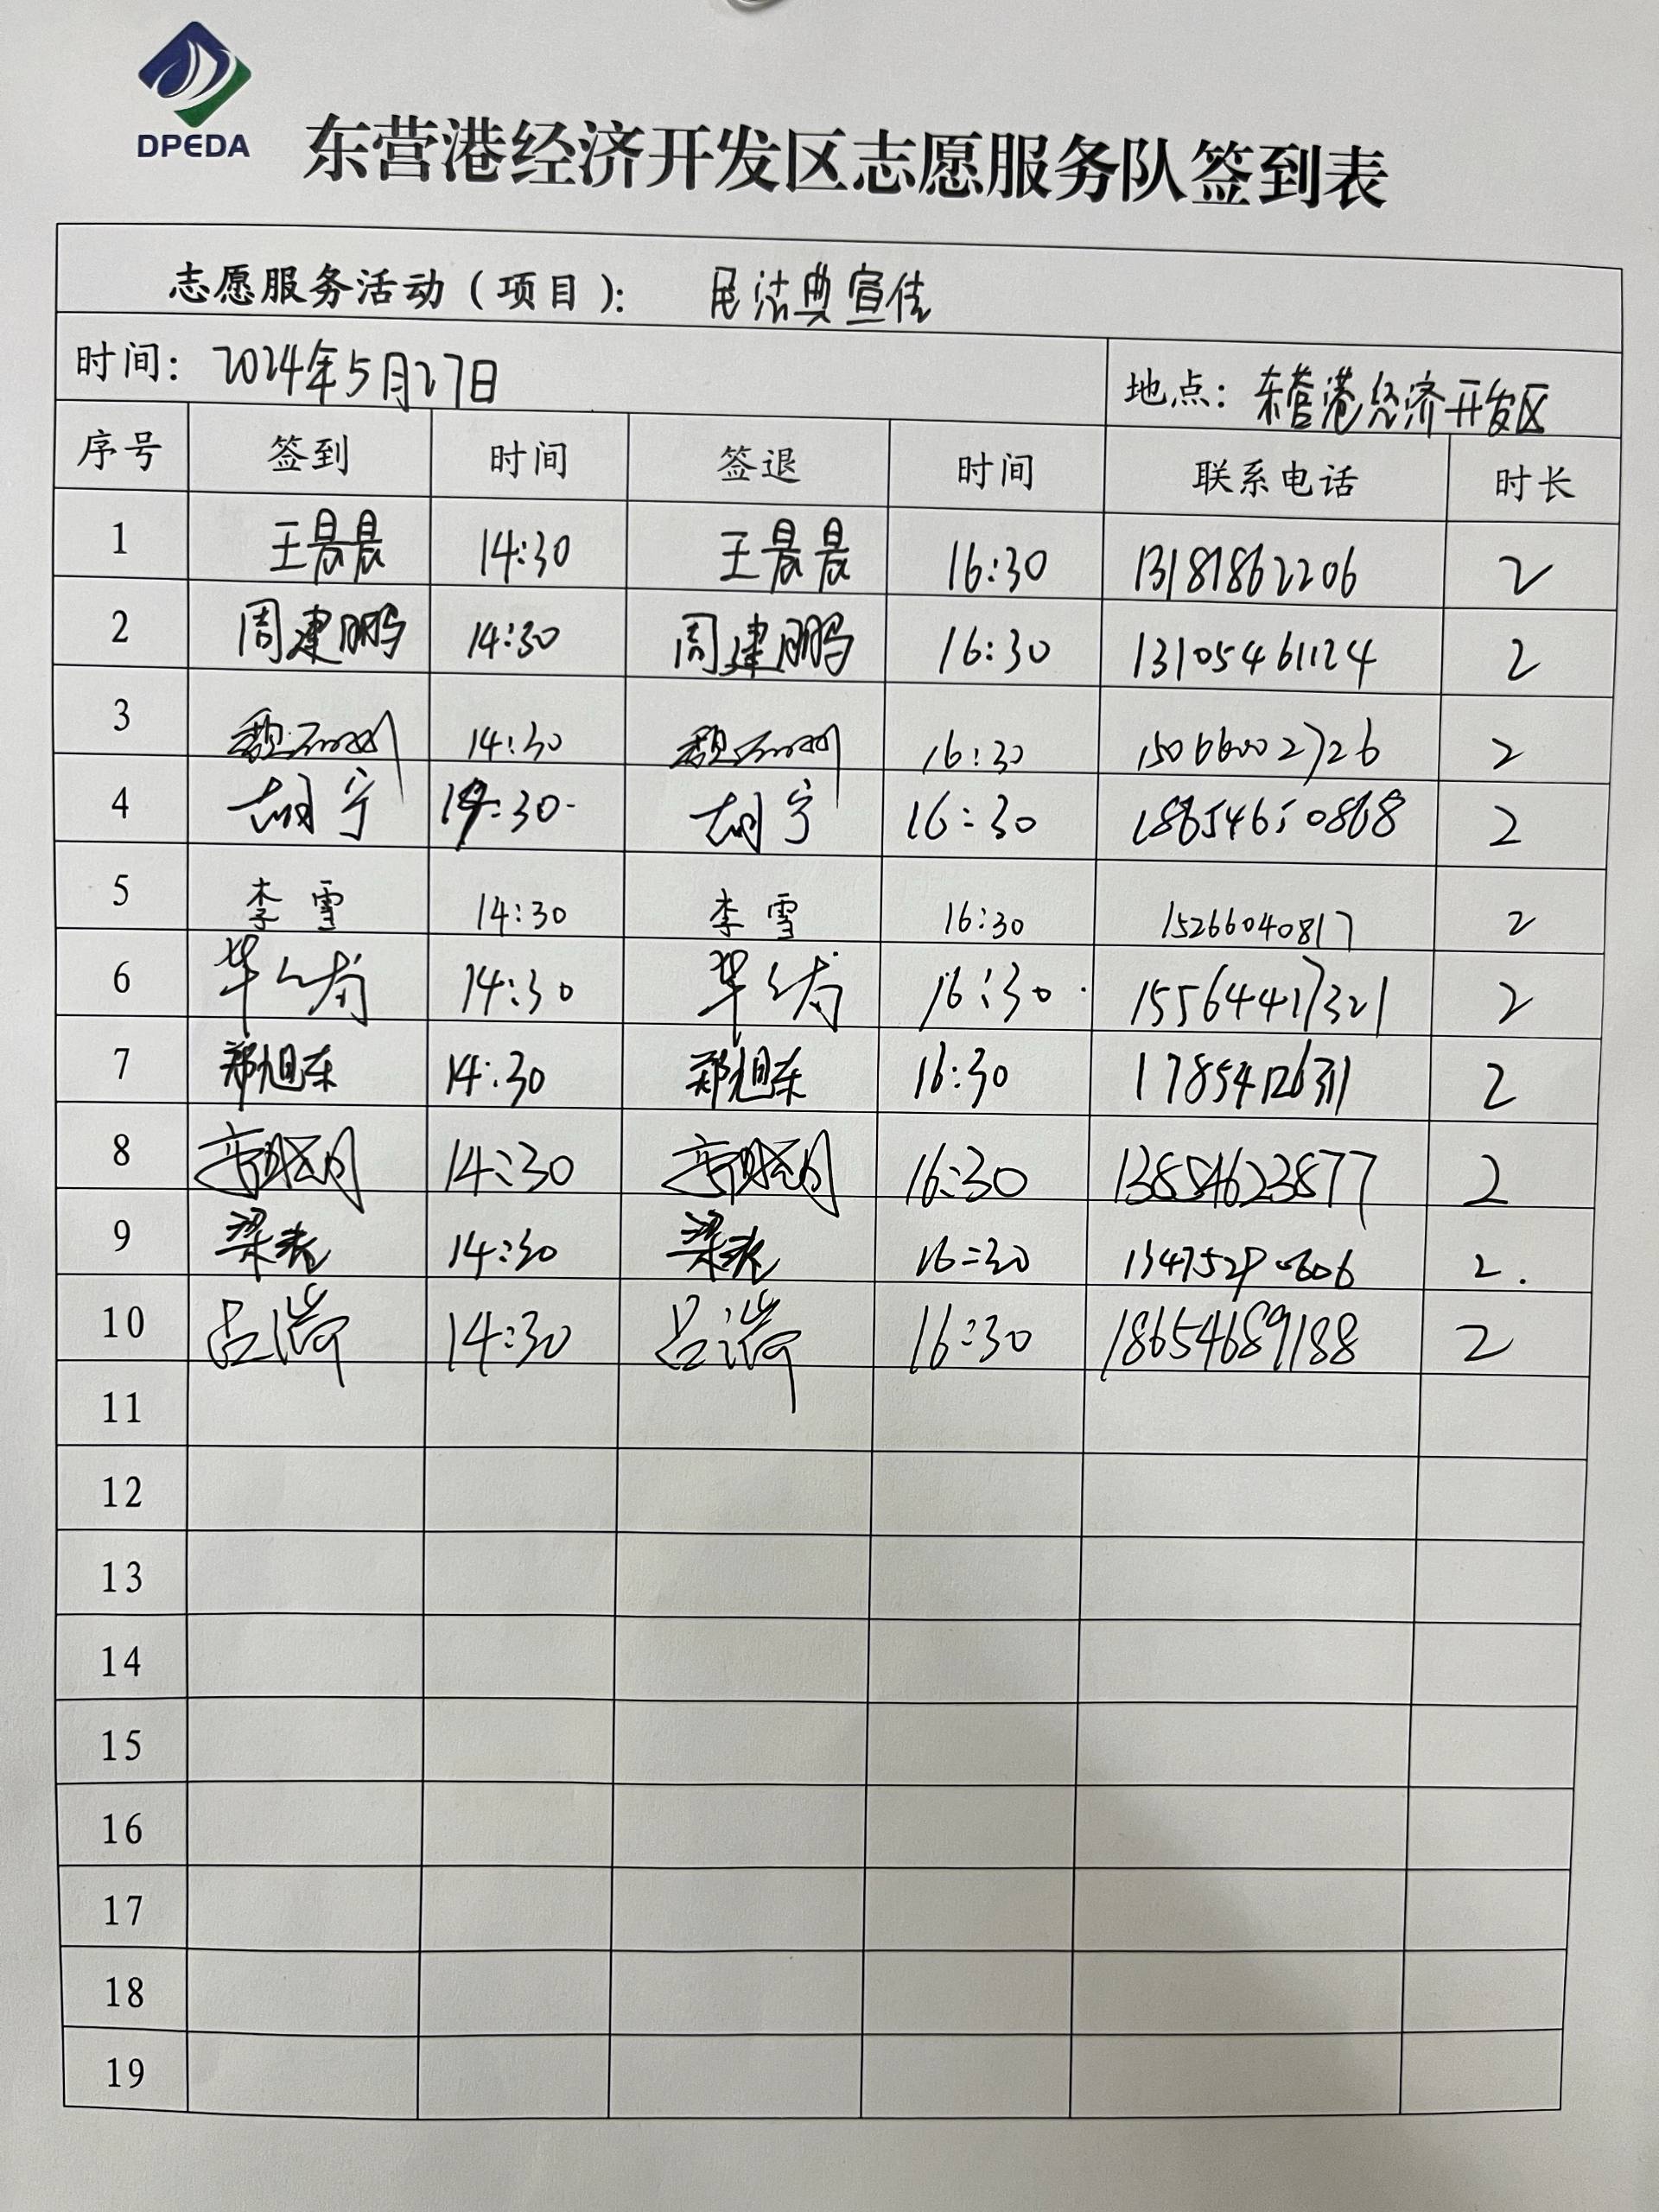 DPEDA
东营港经济开发区志愿服务队签到表
志愿服务活动（项目）： 民法典宣传
时间：2024年5月27日 地点：东营港经济开发区
序号 签到 时间 签退 时间 联系电话 时长
1 王晨晨 14:30 王晨晨 16:30 13181862206 2
2 周建鹏 14:30 周建鹏 16:30 13105461124 2
3 14:30 16:30 15066002726 2
4 胡宁 14:30 胡宁 16:30 18654650868 2
5 李雪 14:30 李雪 16:30 15266040817 2
6 14:30 16:30 15564417321 2
7 郑旭东 14:30 郑旭东 16:30 17854126311 2
8 14:30 16:30 13854623877 2
9 14:30 16:30 2
10 14:30 16:30 18654689188 2
11
12
13
14
15
16
17
18
19